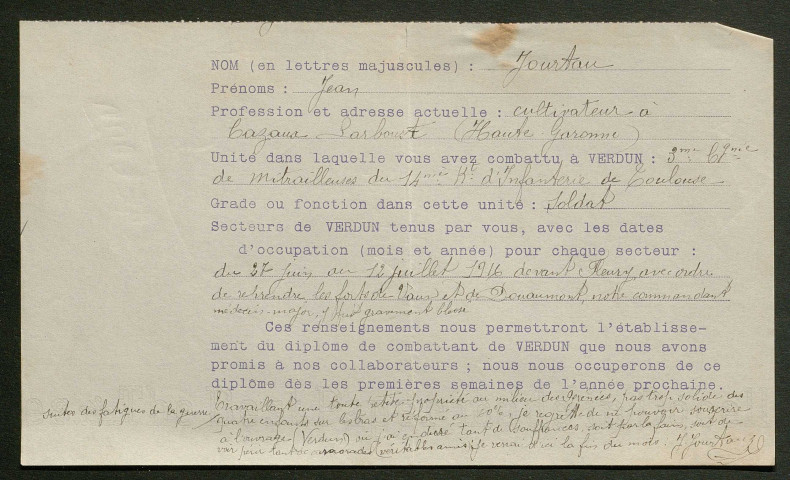 NOM (en lettres majuscules) : Jourtau
Prénoms : Jean
Profession et adresse actuelle : cultivateur à
Cazaux Larboust (Haute Garonne)
Unité dans laquelle vous avez combattu à VERDUN : 3me Cgnie
de mitrailleuses du 14me Rt d'Infanterie de Toulouse
Grade ou fonction dans cette unité : Soldat
Secteurs de VERDUN tenus par vous, avec les dates
d'occupation (mois et année) pour chaque secteur :
du 27 juin au 12 juillet 1916 devant Fleury avec ordre
de reprendre les forts de Vaux et de Douaumont, notre commandant
médecin-major y fut gravement blessé
Ces renseignements nous permettront l'établisse-
ment du diplôme de combattant de VERDUN que nous avons
promis à nos collaborateurs ; nous nous occuperons de ce
diplôme dès les premières semaines de l'année prochaine.
Travaillant une toute petite propriété au milieu des Pyrénées, pas trop solide des
suites des fatigues de la guerre, quatre enfants sur les bras et réformé au 60%, je regrette de ne pouvoir souscrire
à l'ouvrage (Verdun) où j'ai enduré tant de souffrances, soit par la faim, soit de
voir périr tant de camarades (véritables amis) je verrai d'ici la fin du mois. J Jourtau